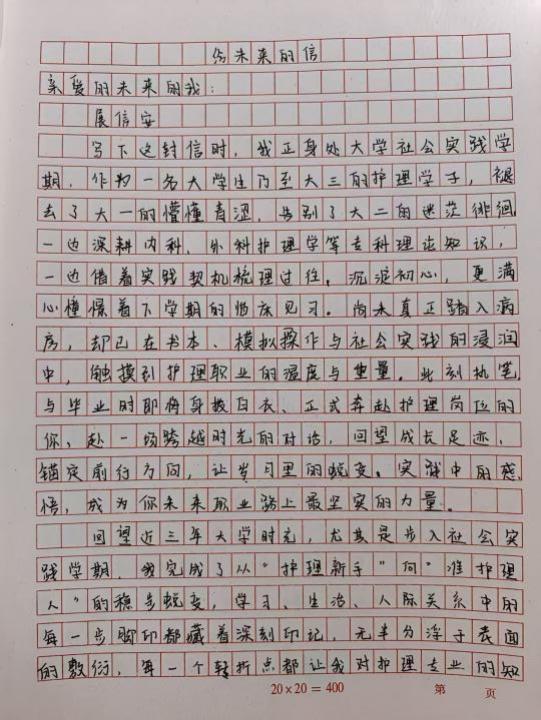 给未来的信
亲爱的未来的我:
展信安
写下这封信时,我正身处大学社会实践学
期,作为一名大学生乃至大三的护理学子,褪
去了大一的懵懂青涩,告别了大二的迷茫徘徊,
一边深耕内科、外科护理学等专科理论知识,
一边借着实践契机梳理过往,沉淀初心,更满
心憧憬着下学期的临床见习。尚未真正踏入病
房,却已在书本、模拟操作与社会实践的浸润
中,触摸到护理职业的温度与重量。此刻执笔,
与毕业时即将身披白衣、正式奔赴护理岗位的
你、赴一场跨越时光的对话,回望成长足迹,
锚定前行方向,让岁月里的蜕变、实践中的感
悟,成为你未来职业路上最坚实的力量。
回望近三年大学时光,尤其是步入社会实
践学期,我完成了从“护理新手”向“准护理
人”的稳步蜕变,学习、生活、人际关系中的
每一步脚印都藏着深刻印记,无半分浮于表面
的敷衍,每一个转折点都让我对护理专业的知
20×20=400 第 页